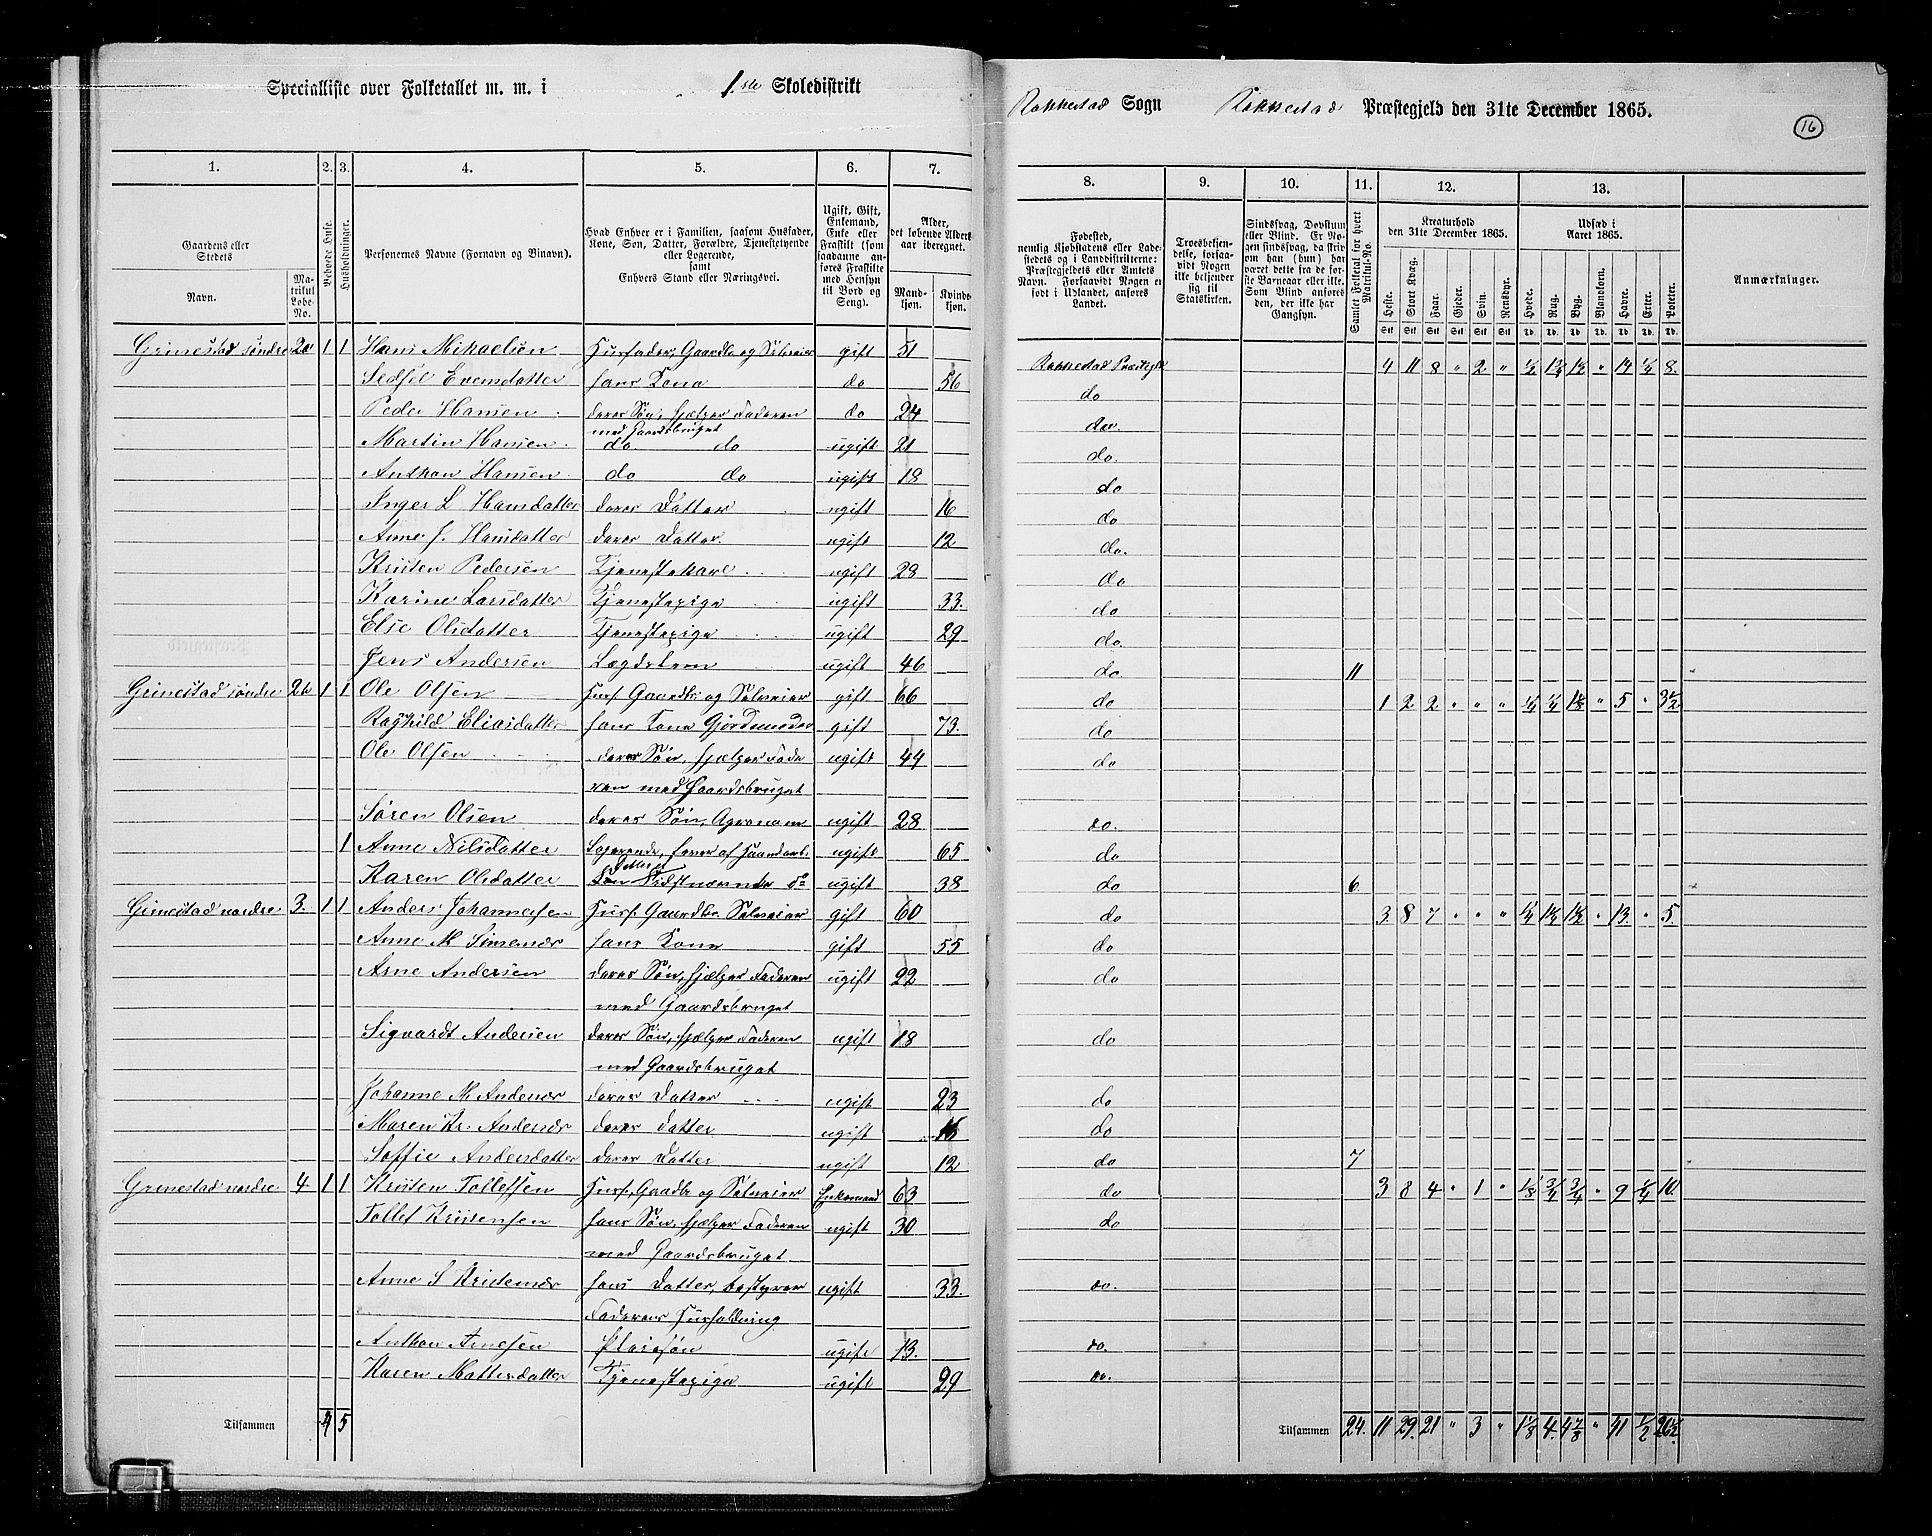 Specialliste over Folketallet m. m. i 1ste Skoledistrikt
Rakkestad Sogn Rakkestad Præstegjeld den 31te December 1865.
16
1. 2. 3. 4. 5. 6. 7. 8. 9. 10. 11. 12. 13.
Gaardens eller Stedets
Navn.
Matrikul Løbe-No.
Beboede Huse.
Husholdninger.
Personernes Navne (Fornavn og Binavn).
Hvad Enhver er i Familien, saasom Husfader, Kone, Søn, Datter, Forældre, Tjenestetyende eller Logerende, samt Enhvers Stand eller Næringsvei.
Ugift, Gift, Enkemand, Enke eller Fraskilt (som saadanne anføres Fraskilte med Hensyn til Bord og Seng).
Alder, det løbende Alders-aar iberegnet.
Mand-kjøn.
Kvinde-kjøn.
Fødested, nemlig Kjøbstadens eller Ladestedets og i Landdistrikterne: Præstegjeldets eller Amtets Navn. Forsaavidt Nogen er født i Udlandet, anføres Landet.
Troesbekjendelse, forsaavidt Nogen ikke bekjender sig til Statskirken.
Sindssvag, Døvstum eller Blind. Er Nogen sindssvag, da skriv om han (hun) har været dette fra de første Barneaar eller ikke. Som Blind anføres den, der ikke har Gangsyn.
Samlet Folketal for hvert Matrikul-No.
Kreaturhold den 31te December 1865.
Heste. Stort Kvæg. Faar. Gjeder. Svin. Rensdyr.
Udsæd i Aaret 1865.
Hvede. Rug. Byg. Blandkorn. Havre. Erter. Poteter.
Anmærkninger.
Grimestad søndre 2a 1 1 Hans Mikaelsen Husfader, Gaardbr. og Selveier gift 51 Rakkestad Præstegld 4 11 8 " 2 " 1/2 " 14 1/4 8
Sidsel Evensdatter hans Kone do 56 do
Peder Hansen deres Søn, hjælper Faderen do 24 do
med Gaardsbruget
Martin Hansen do do ugift 21 do
Anthon Hansen do do ugift 18 do
Inger L Hansdatter deres Datter ugift 16 do
Anne J. Hansdatter deres Datter ugift 12 do
Kristen Pedersen Tjenestekarl ugift 28 do
Karine Larsdatter Tjenestepige ugift 33 do
Else Olsdatter Tjenestepige ugift 29 do
Jens Andersen Lægdslem ugift 46 do 11
Grimestad søndre 2b 1 1 Ole Olsen Husf. Gaardbr. og Selveier gift 66 do 1 2 2 " " " 1/4 1/4 1 1/8 " 5 " 3 1/2
Ragnhild Eliasdatter hans Kone Gjordemoder gift 73 do
Ole Olsen deres Søn, hjælper Fade ugift 44 do
ren med Gaardsbruget
Søren Olsen deres Søn, Agronom ugift 28 do
1 Anne Nilsdatter Logerende, lever af Haandarb. ugift 65 do
Karen Olsdatter Datter Sidstnævnte ds ugift 38 do 6
Grimestad nordre 3. 1 1 Anders Johannesen Husf. Gaardbr. Selveier gift 60 do 3 8 7 " " " 1/4 1 1/2 1 1/2 " 13 " 5
Anne M Simensdr hans Kone gift 55 do
Arne Andersen deres Søn, hjælper Faderen ugift 22 do
med Gaardsbruget
Sigvardt Andersen deres Søn, hjælper Faderen ugift 18 do
med Gaardsbruget
Johanne M. Andersdr deres Datter ugift 23 do
Maren Kr. Andersdr deres Datter ugift 16 do
Soffie Andersdatter deres Datter ugift 12 do 7
Grimestad nordre 4 1 1 Kristen Tollefsen Husf., Gaardbr og Selveier Enkemand 63 do 3 8 4 " 1 " 1/8 3/4 3/4 " 9 1/4 10
Tollef Kristensen hans Søn, hjælper Faderen ugift 30 do
med Gaardsbruget
Anne S Kristensdr hans Datter, bestyrer ugift 33 do
Faderens Husholdning
Anthon Arnesen Pleiesøn ugift 13 do
Karen Mathisdatter Tjenestepige ugift 29 do
Tilsammen 4 5 Tilsammen 24 11 29 21 " 3 " 1 1/8 4 4 7/8 " 41 1/2 26 1/2